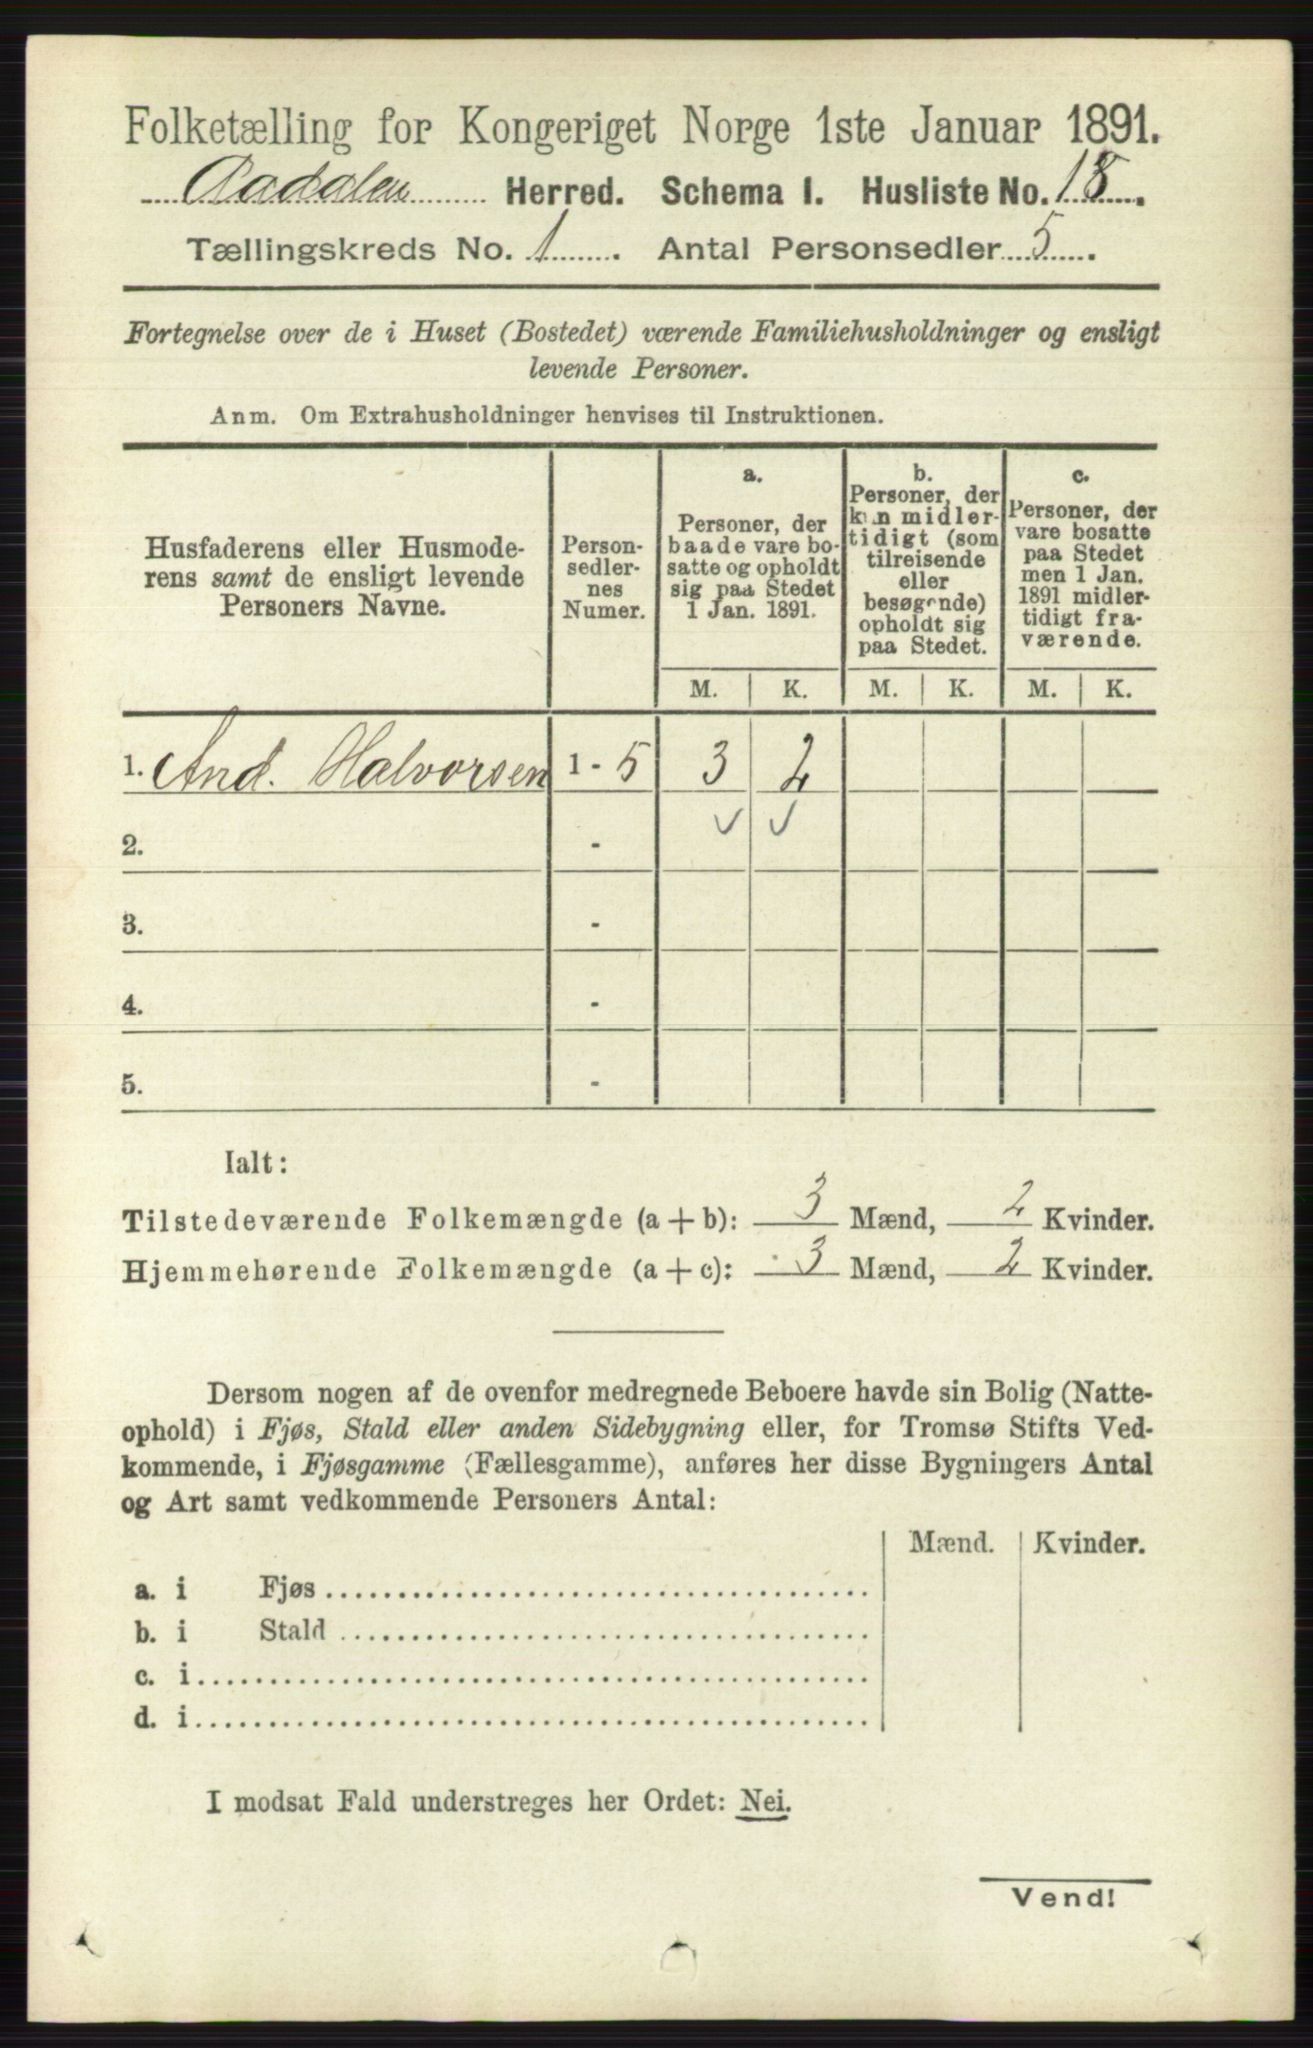 Folketælling for Kongeriget Norge 1ste Januar 1891.
Aadalen Herred. Schema I. Husliste No. 18.
Tællingskreds No. 1. Antal Personsedler 5.
Fortegnelse over de i Huset (Bostedet) værende Familiehusholdninger og ensligt
levende Personer.
Anm. Om Extrahusholdninger henvises til Instruktionen.
Husfaderens eller Husmode-
rens samt de ensligt levende
Personers Navne.
Person-
sedler-
nes
Numer.
a.
Personer, der
baade vare bo-
satte og opholdt
sig paa Stedet
1 Jan. 1891.
b.
Personer, der
kun midler-
tidigt (som
tilreisende
eller
besøgende)
opholdt sig
paa Stedet.
c.
Personer, der
vare bosatte
paa Stedet
men 1 Jan.
1891 midler-
tidigt fra-
værende.
M. K. M. K. M. K.
1. And. Halvorsen 1 - 5 3 2
2. - ✓ ✓
3. -
4. -
5. -
Ialt:
Tilstedeværende Folkemængde (a + b): 3 Mænd, 2 Kvinder.
Hjemmehørende Folkemængde (a + c): 3 Mænd, 2 Kvinder.
Dersom nogen af de ovenfor medregnede Beboere havde sin Bolig (Natte-
ophold) i Fjøs, Stald eller anden Sidebygning eller, for Tromsø Stifts Ved-
kommende, i Fjøsgamme (Fællesgamme), anføres her disse Bygningers Antal
og Art samt vedkommende Personers Antal:
Mænd. Kvinder.
a. i Fjøs
b. i Stald
c. i
d. i
I modsat Fald understreges her Ordet: Nei.
Vend!